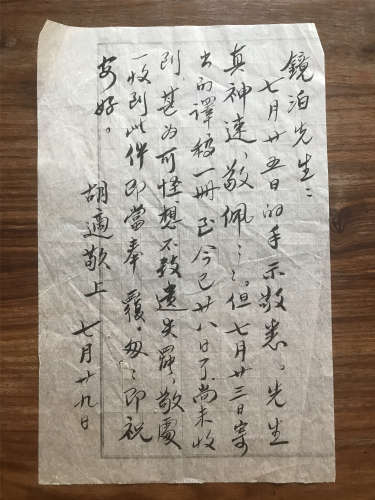 鏡泊先生：
七月廿五日的手示敬悉。先生
真神速，敬佩敬佩。但七月廿三日寄
出的譯稿一册，至今已廿八日了尚未收
到，甚为可怪，想不致遺失罷，敬處
一收到此件即當奉覆。匆匆即祝
安好。
胡適敬上 七月廿九日